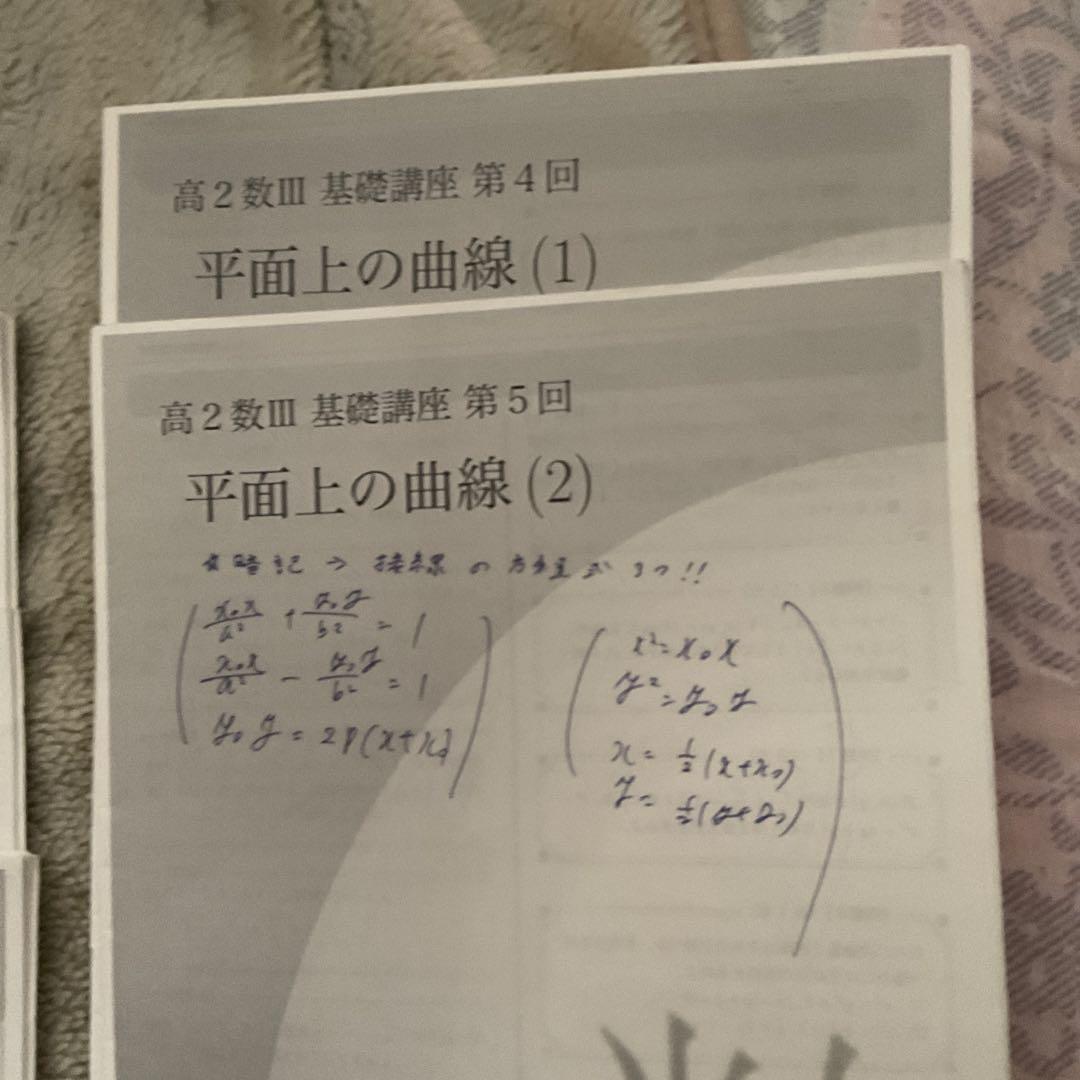 高2数III 基礎講座 第4回
平面上の曲線(1)
高2数III 基礎講座 第5回
平面上の曲線(2)
☆暗記→接線の方程式3つ!!
x₀x/a² + y₀y/b² = 1
x₀x/a² - y₀y/b² = 1
y₀y = 2p(x+x₀)
x² = x₀x
y² = y₀y
x = 1/2(x+x₀)
y = 1/2(y+y₀)